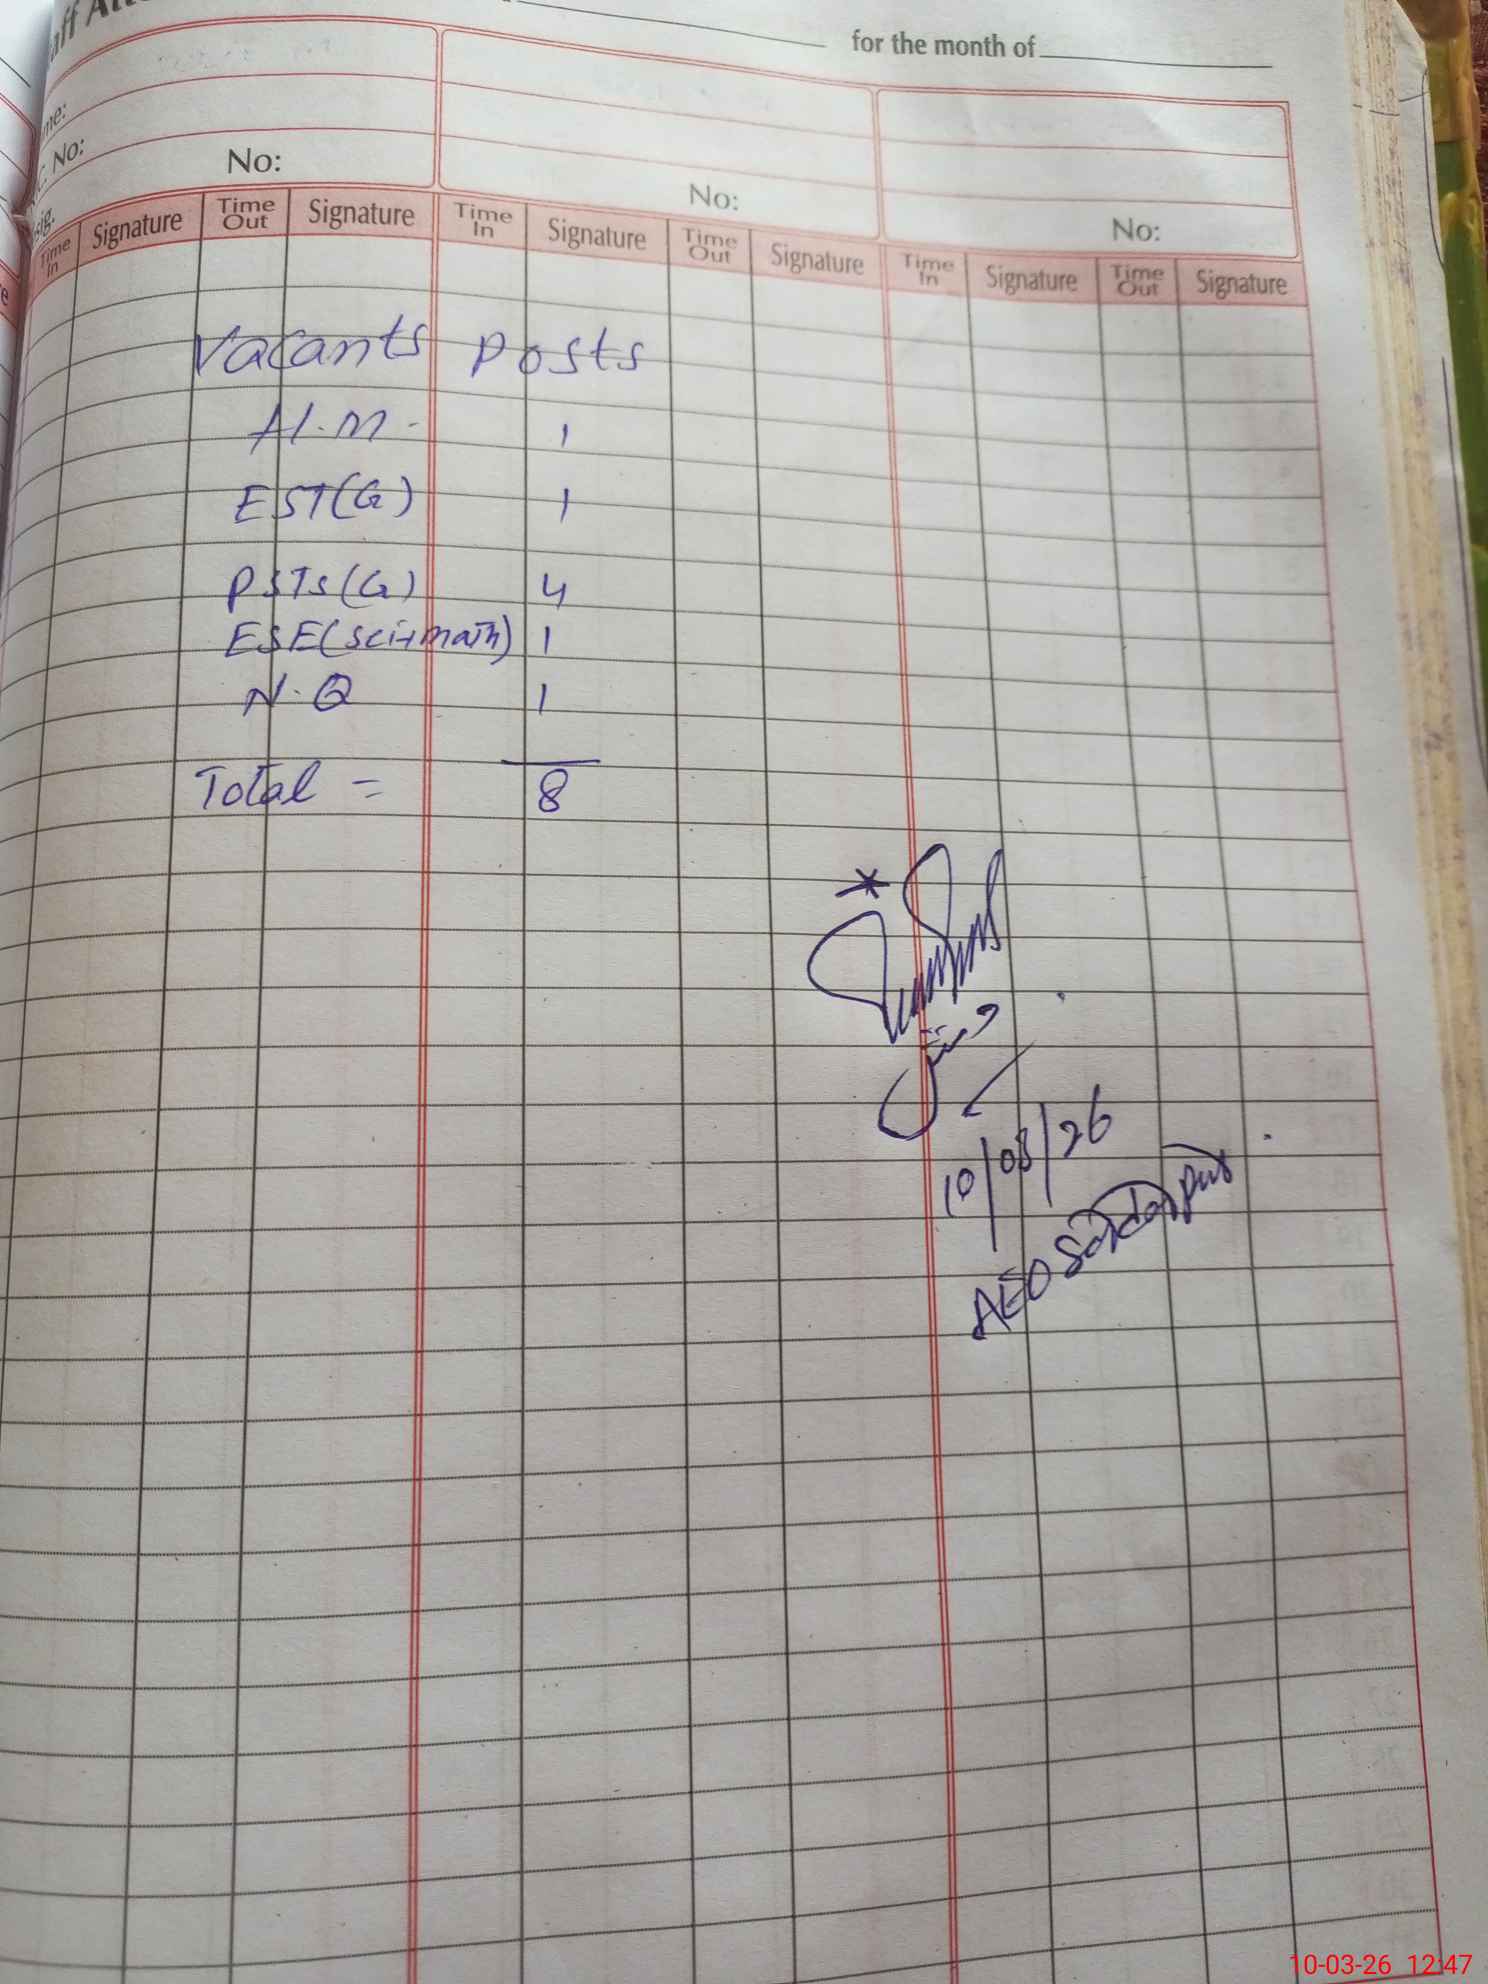 for the month of
No:
No:
No:
Time In Signature Time Out Signature Time In Signature Time Out Signature Time In Signature Time Out Signature
Vacants posts
H.M. 1
EST(G) 1
PSTs(G) 4
ESE(sci+math) 1
N.Q 1
Total = 8
10/03/26
AEO Sardarpur
10-03-26 12:47